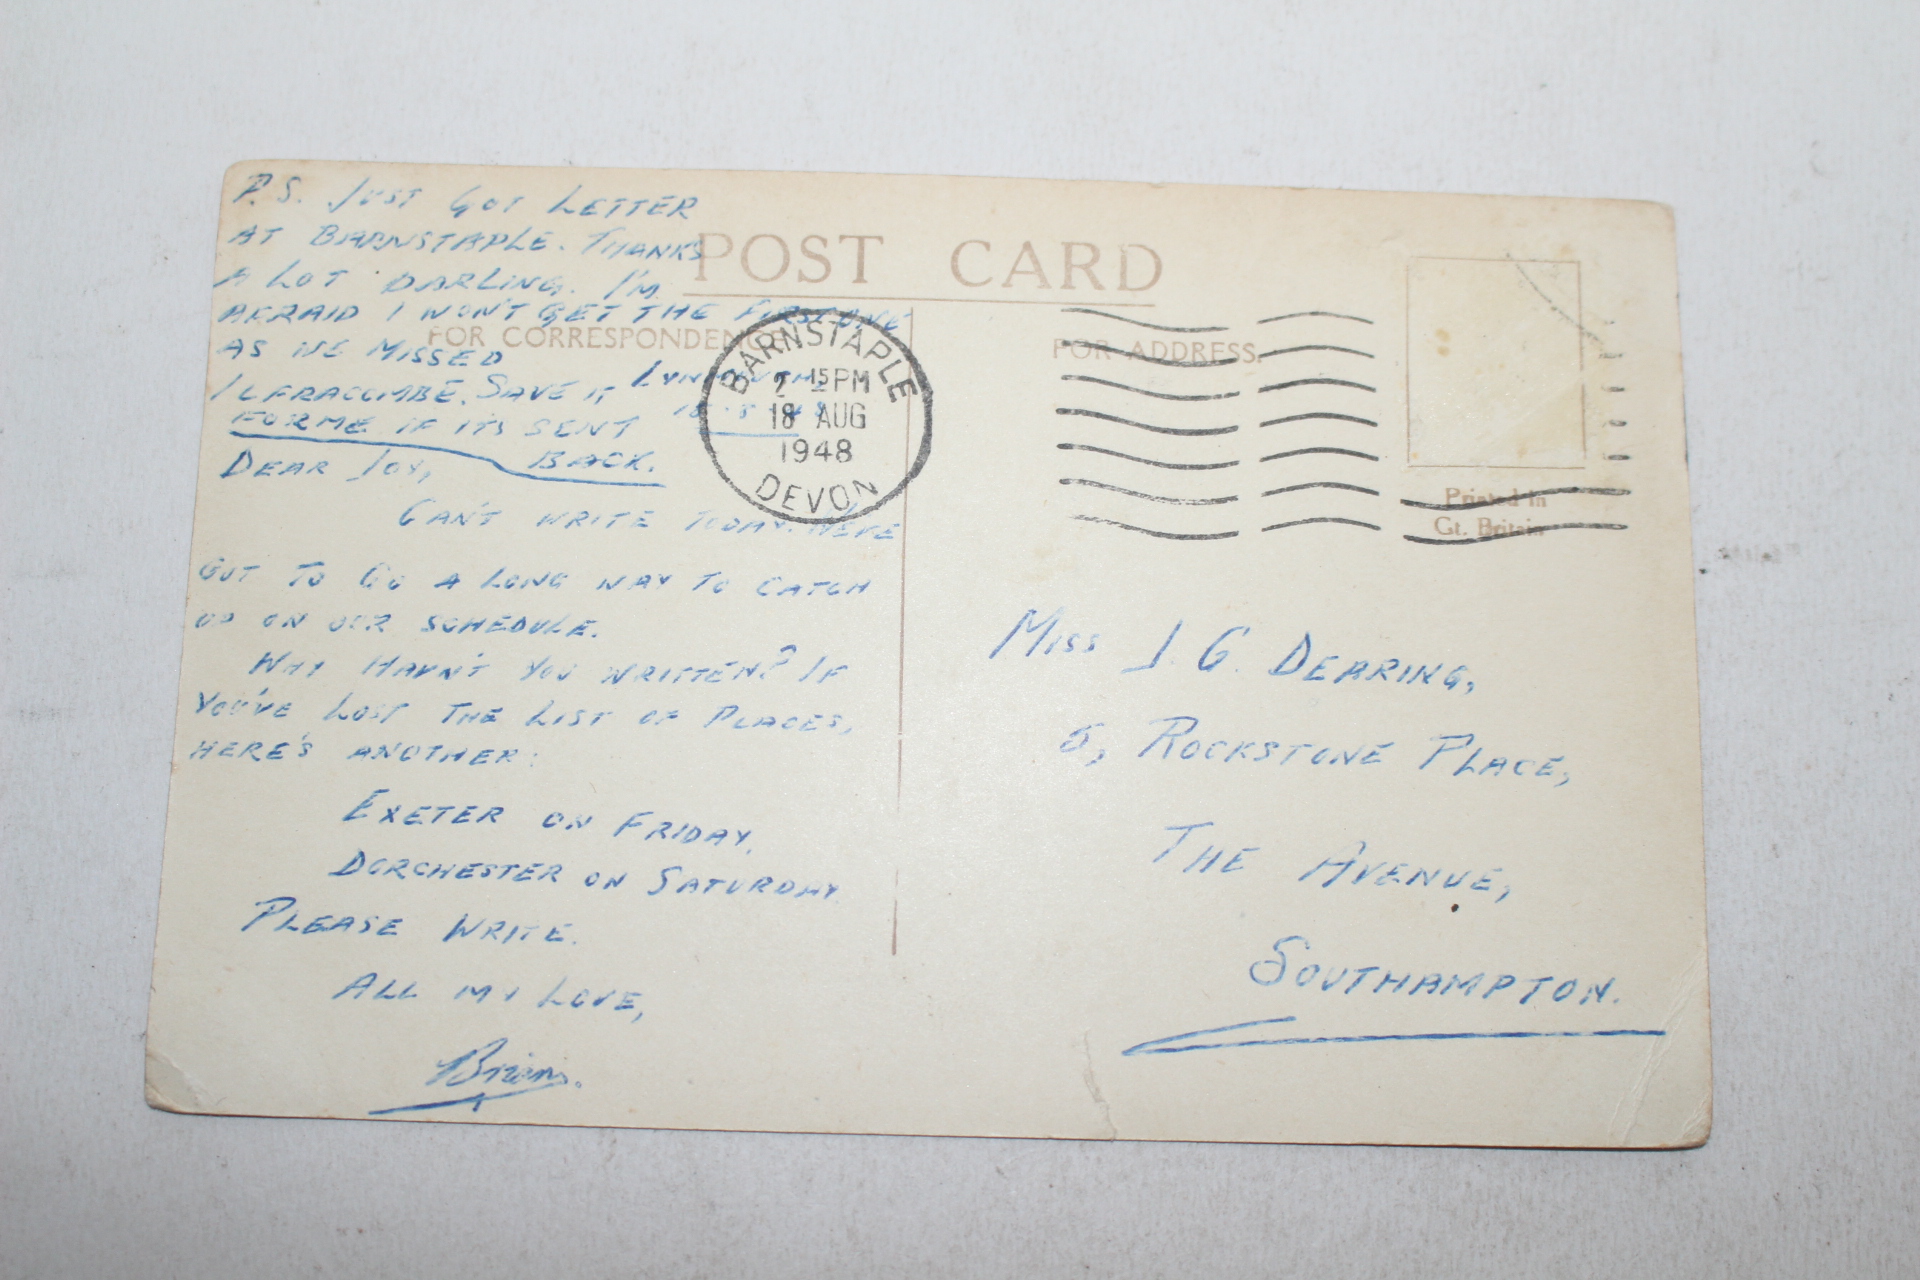 P.S. JUST GOT LETTER
AT BARNSTAPLE. THANKS
A LOT DARLING. I'M
AFRAID I WON'T GET THE FIRST ONE
AS WE MISSED
ILFRACOMBE. SAVE IT
FOR ME IF ITS SENT
BACK.
POST CARD
FOR CORRESPONDENCE
FOR ADDRESS.
LYNMOUTH
18-8-48
BARNSTAPLE
2 15 PM
18 AUG
1948
DEVON
Printed in
Gt. Britain
DEAR JOY,
CAN'T WRITE TODAY. WE'VE
GOT TO GO A LONG WAY TO CATCH
UP ON OUR SCHEDULE.
WHY HAVN'T YOU WRITTEN? IF
YOU'VE LOST THE LIST OF PLACES,
HERE'S ANOTHER:
EXETER ON FRIDAY.
DORCHESTER ON SATURDAY.
PLEASE WRITE.
ALL MY LOVE,
Brian.
MISS J. G. DEARING,
5, ROCKSTONE PLACE,
THE AVENUE,
SOUTHAMPTON.